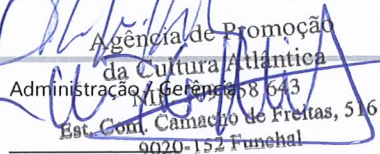 Agência de Promoção
da Cultura Atlântica
Administração / Gerência
643
Est. Com. Camacho de Freitas, 516
9020-152 Funchal